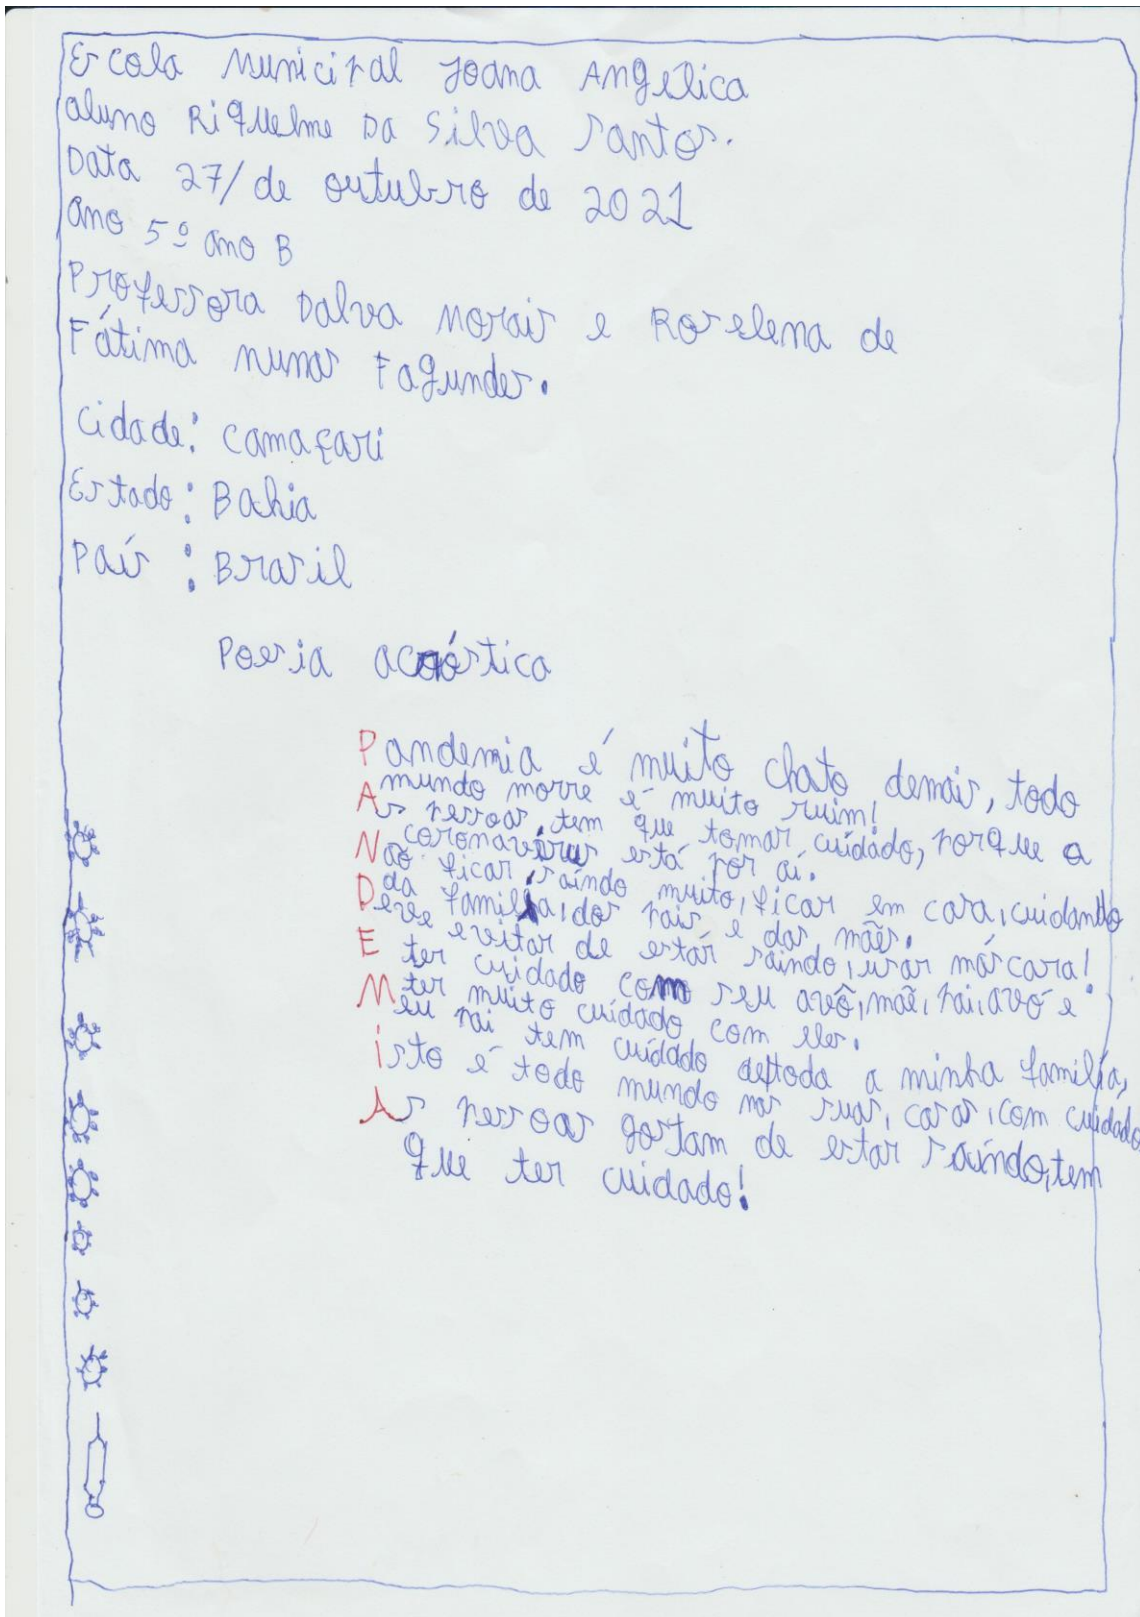 Escola Municipal Joana Angelica
aluno Riquelme Da Silva Santos.
Data 27/de outubro de 2021
ano 5º ano B
Professora Dalva Morais e Roselena de
Fátima nunas Fagundes.
Cidade: Camaçari
Estado: Bahia
País : Brasil
Poesia acróstica
Pandemia é muito chato demais, todo
mundo morre é muito ruim!
As pessoas, tem que tomar cuidado, porque a
coronavírus está por aí.
Não ficar saindo muito, ficar em casa, cuidando
da família, dos pais e das mães.
Deve evitar de estar saindo, usar máscara!
E ter cuidado com seu avô, mãe, pai, avó e
ter muito cuidado com eles.
Meu pai tem cuidado de toda a minha família,
isto é todo mundo nas ruas, casas, com cuidado
As pessoas gostam de estar saindo, tem
que ter cuidado!